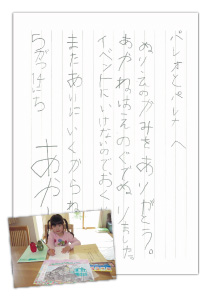 パレオとパレナへ
ぬりえのかみをありがとう。
あかねはえのぐでぬりました
イベントにいけないのでおく
またあいにいくからね
5がつ1にち